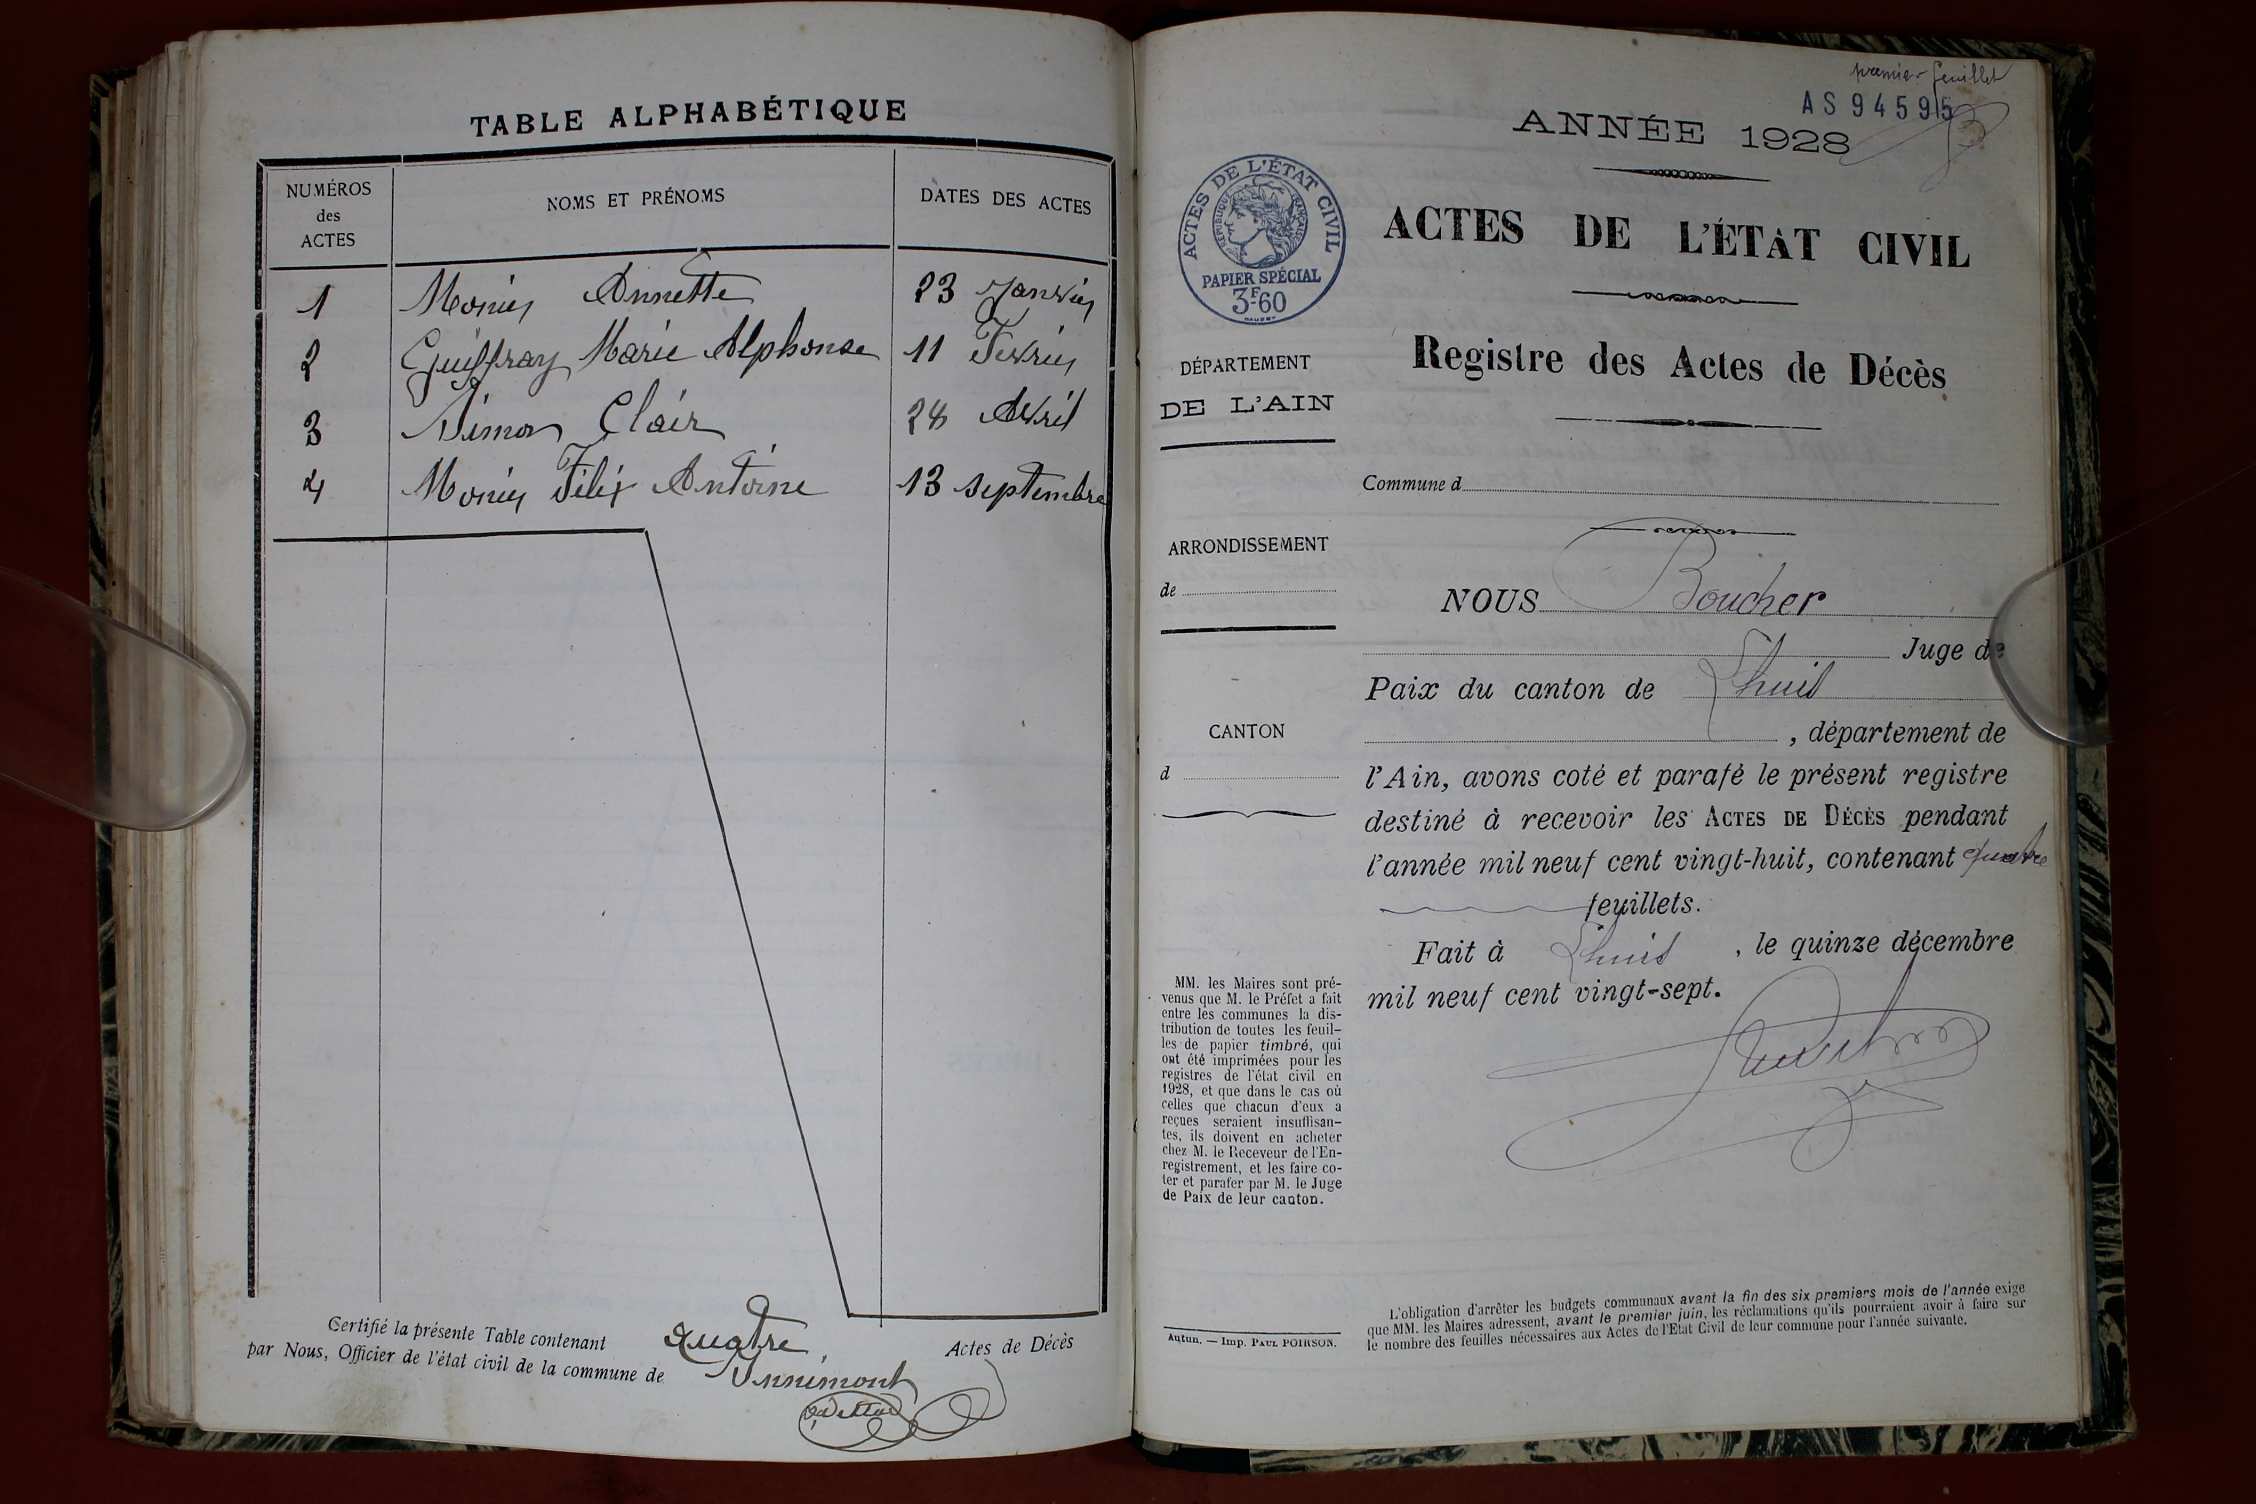 TABLE ALPHABÉTIQUE
NUMÉROS
des
ACTES
NOMS ET PRÉNOMS
DATES DES ACTES
1 Monin Annette 23 Janvier
2 Guiffray Marie Alphonse 11 Fevrier
3 Simon Clair 28 Avril
4 Monin Félix Antoine 13 septembre
Certifié la présente Table contenant quatre Actes de Décès
par Nous, Officier de l'état civil de la commune de Innimont
premier feuillet
AS 94595
ANNÉE 1928
ACTES DE L'ÉTAT CIVIL
RÉPUBLIQUE FRANÇAISE
PAPIER SPÉCIAL
3F-60
ACTES DE L'ÉTAT CIVIL
Registre des Actes de Décès
DÉPARTEMENT
DE L'AIN
Commune d
ARRONDISSEMENT
de
CANTON
d
NOUS Boucher
Juge de
Paix du canton de Lhuis
, département de
l'Ain, avons coté et parafé le présent registre
destiné à recevoir les ACTES DE DÉCÈS pendant
l'année mil neuf cent vingt-huit, contenant quatre
feuillets.
Fait à Lhuis, le quinze décembre
mil neuf cent vingt-sept.
MM. les Maires sont pré-
venus que M. le Préfet a fait
entre les communes la dis-
tribution de toutes les feuil-
les de papier timbré, qui
ont été imprimées pour les
registres de l'état civil en
1928, et que dans le cas où
celles que chacun d'eux a
reçues seraient insuffisan-
tes, ils doivent en acheter
chez M. le Receveur de l'En-
registrement, et les faire co-
ter et parafer par M. le Juge
de Paix de leur canton.
Autun. — Imp. PAUL POIRSON.
L'obligation d'arrêter les budgets communaux avant la fin des six premiers mois de l'année exige
que MM. les Maires adressent, avant le premier juin, les réclamations qu'ils pourraient avoir à faire sur
le nombre des feuilles nécessaires aux Actes de l'Etat Civil de leur commune pour l'année suivante.